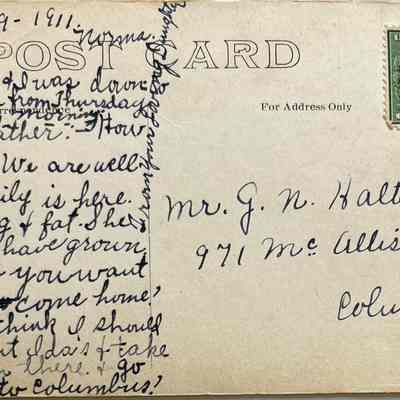 9-1911.
Norma.
POST CARD
& I was down
from Thursday
morning
Correspondence
For Address Only
father:- How
We are well
ily is here.
g & fat. She
have grown
you want
come home?
think I should
Ida's & take
there. & go
to Columbus?
Mr. G. N. Halt
971 Mc Allis
Colu